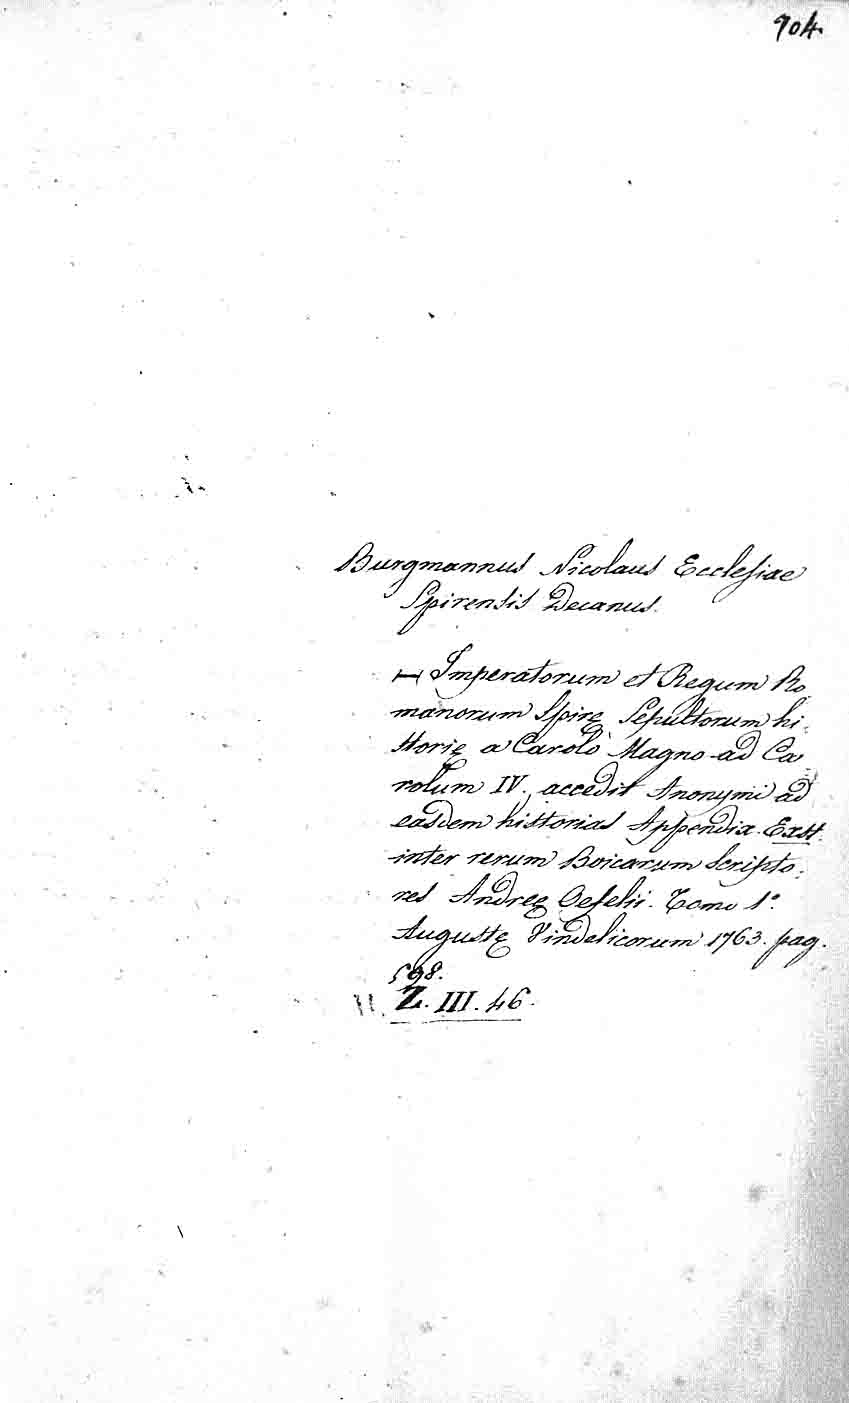 904.
Burgmannus Nicolaus Ecclesiae
Spirensis Decanus.
— Imperatorum et Regum Ro
manorum Spirę Sepultorum hi-
storię a Carolo Magno ad Ca
rolum IV. accedit Anonymi ad
easdem historias Appendix. Exst.
inter rerum Boicarum Scripto-
res Andreę Oefelii. Tomo 1º.
Augustę Vindelicorum 1763. pag.
598.
Z. III. 46.